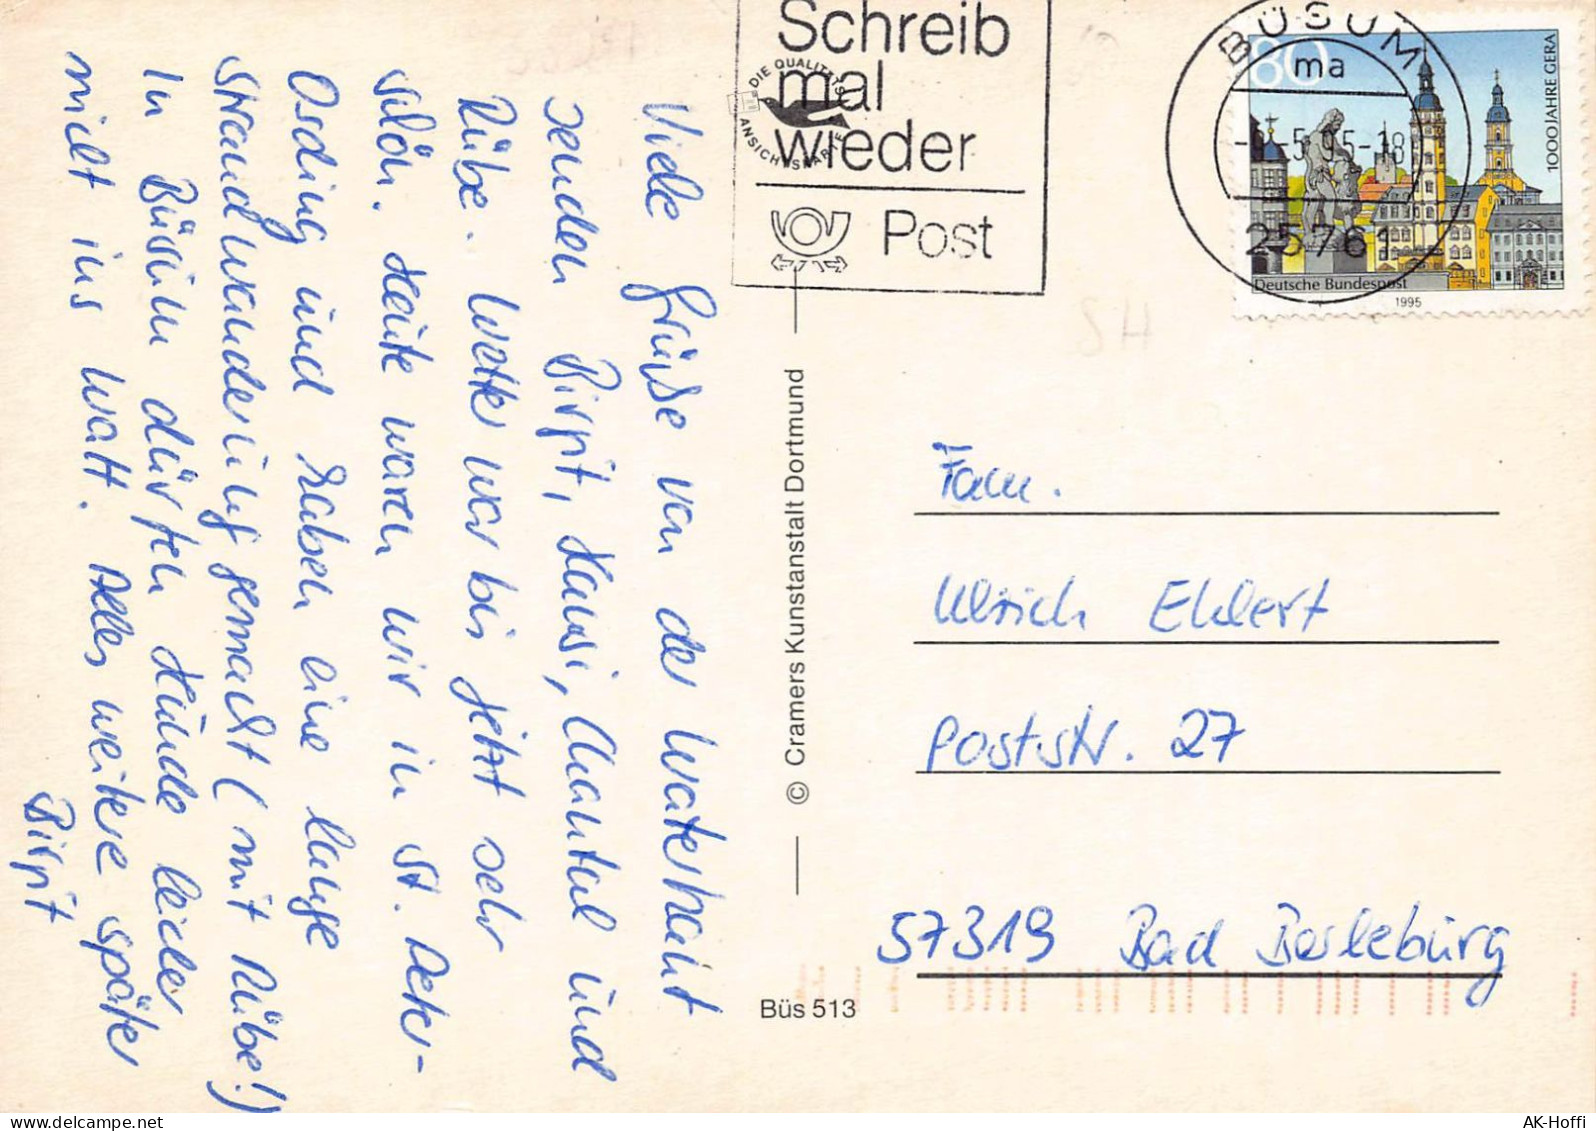 Viele Grüße von der Waterkant
senden Birgit, Hansi, Chantal und
Rübe. Wetter war bis jetzt sehr
schön. Heute waren wir in St. Peter-
Ording und haben eine lange
Strandwanderung gemacht (mit Rübe!)
In Büsum dürfen Hunde leider
nicht ins Watt. Alles weitere später
Birgit
Schreib
mal
wieder
Post
DIE QUALITÄTS
ANSICHTSKARTE
BÜSUM
ma
-5.95-18
25761
80
1000 JAHRE GERA
Deutsche Bundespost
1995
SH
© Cramers Kunstanstalt Dortmund
Büs 513
Fam.
Ulrich Ehlert
Poststr. 27
57319 Bad Berleburg
AK-Hoffi